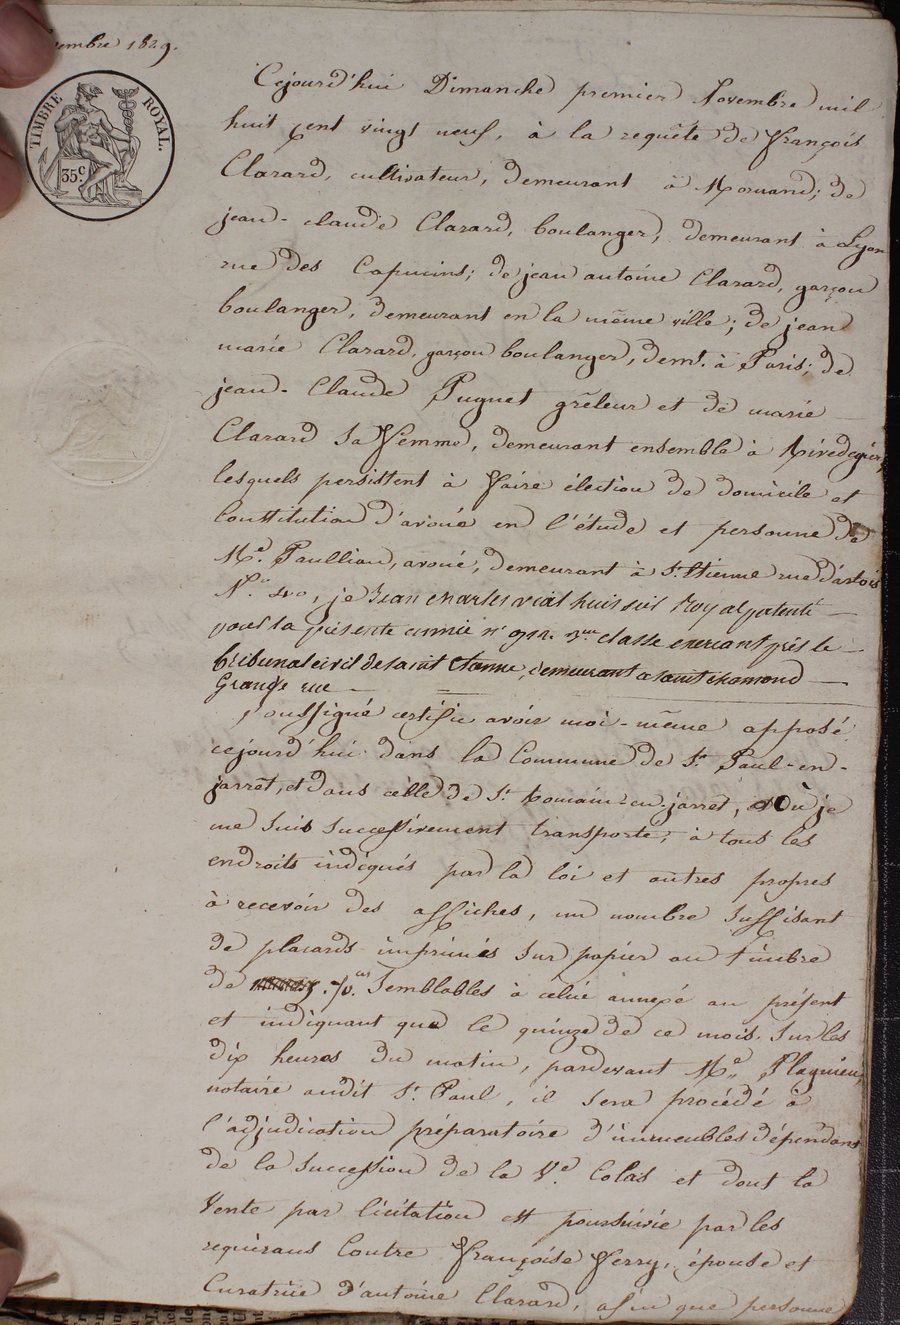 vembre 1829.
TIMBRE ROYAL.
35c.
Cejourd'hui Dimanche premier Novembre mil
huit cent vingt neuf, à la requête de François
Clarard, cultivateur, demeurant à Mornand; de
jean-claude Clarard, boulanger, demeurant à Lyon
rue des Capucins; de jean antoine Clarard, garçon
boulanger, demeurant en la même ville; de jean
marie Clarard, garçon boulanger, demt. à Paris; de
jean-Claude Puguet grêleur et de marie
Clarard sa femme, demeurant ensemble à Rivedegier,
lesquels persistent à faire élection de domicile et
Constitution d'avoué en l'étude et personne de
Me. Paullian, avoué, demeurant à St. Etienne rue d'artois
N.o, je Jean charles viat huissier Royal patenté
pour la présente année no 3me classe exerçant près le
tribunal civil de saint Etienne, demeurant a saint chamond
Grande rue
soussigné certifie avoir moi-même apposé
cejourd'hui dans la Commune de St. Paul-en-
jarrêt, et dans celle de St. Romain-en-jarrêt, où je
me suis successivement transporté, à tous les
endroits indiqués par la loi et autres propres
à recevoir des affiches, un nombre suffisant
de placards imprimés sur papier au timbre
de 70.ces semblables à celui annexé au présent
et indiquant que le quinze de ce mois. sur les
dix heures du matin, pardevant Me. Plagnieu,
notaire audit St. Paul, il sera procédé à
l'adjudication préparatoire d'immeubles dépendans
de la succession de la Ve. Colas et dont la
Vente par licitation est poursuivie par les
requérans Contre Françoise Verry, épouse et
Curatrice d'antoine Clarard, afin que personne